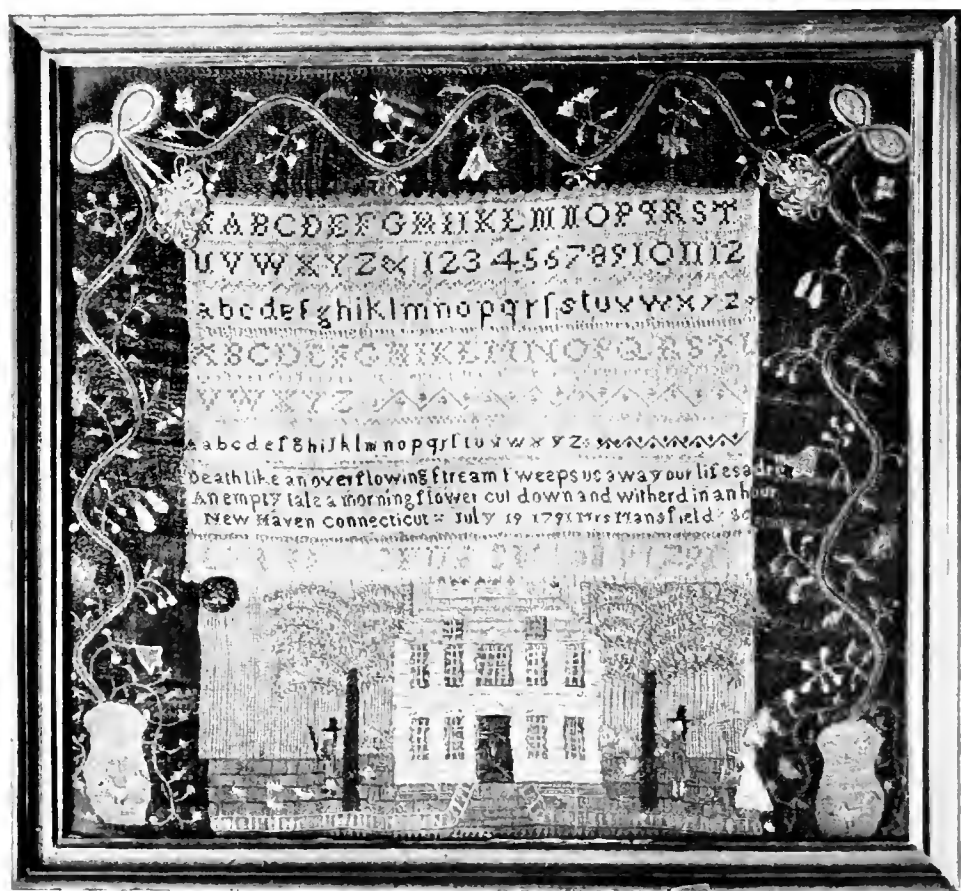 A B C D E F G H I K L M N O P Q R S T
U V W X Y Z & 1 2 3 4 5 6 7 8 9 10 11 12
a b c d e f g h i k l m n o p q r ſ s t u v w x y z
A B C D E F G H I K L M N O P Q R S T
V W X Y Z
a b c d e f g h i J k l m n o p q r ſ t u v w x y z
Death like an overflowing ſtream ſweeps us away our lifes a
An empty tale a morning flower cut down and witherd in an hour
New Haven Connecticut July 19 1791 Mrs Mansfield